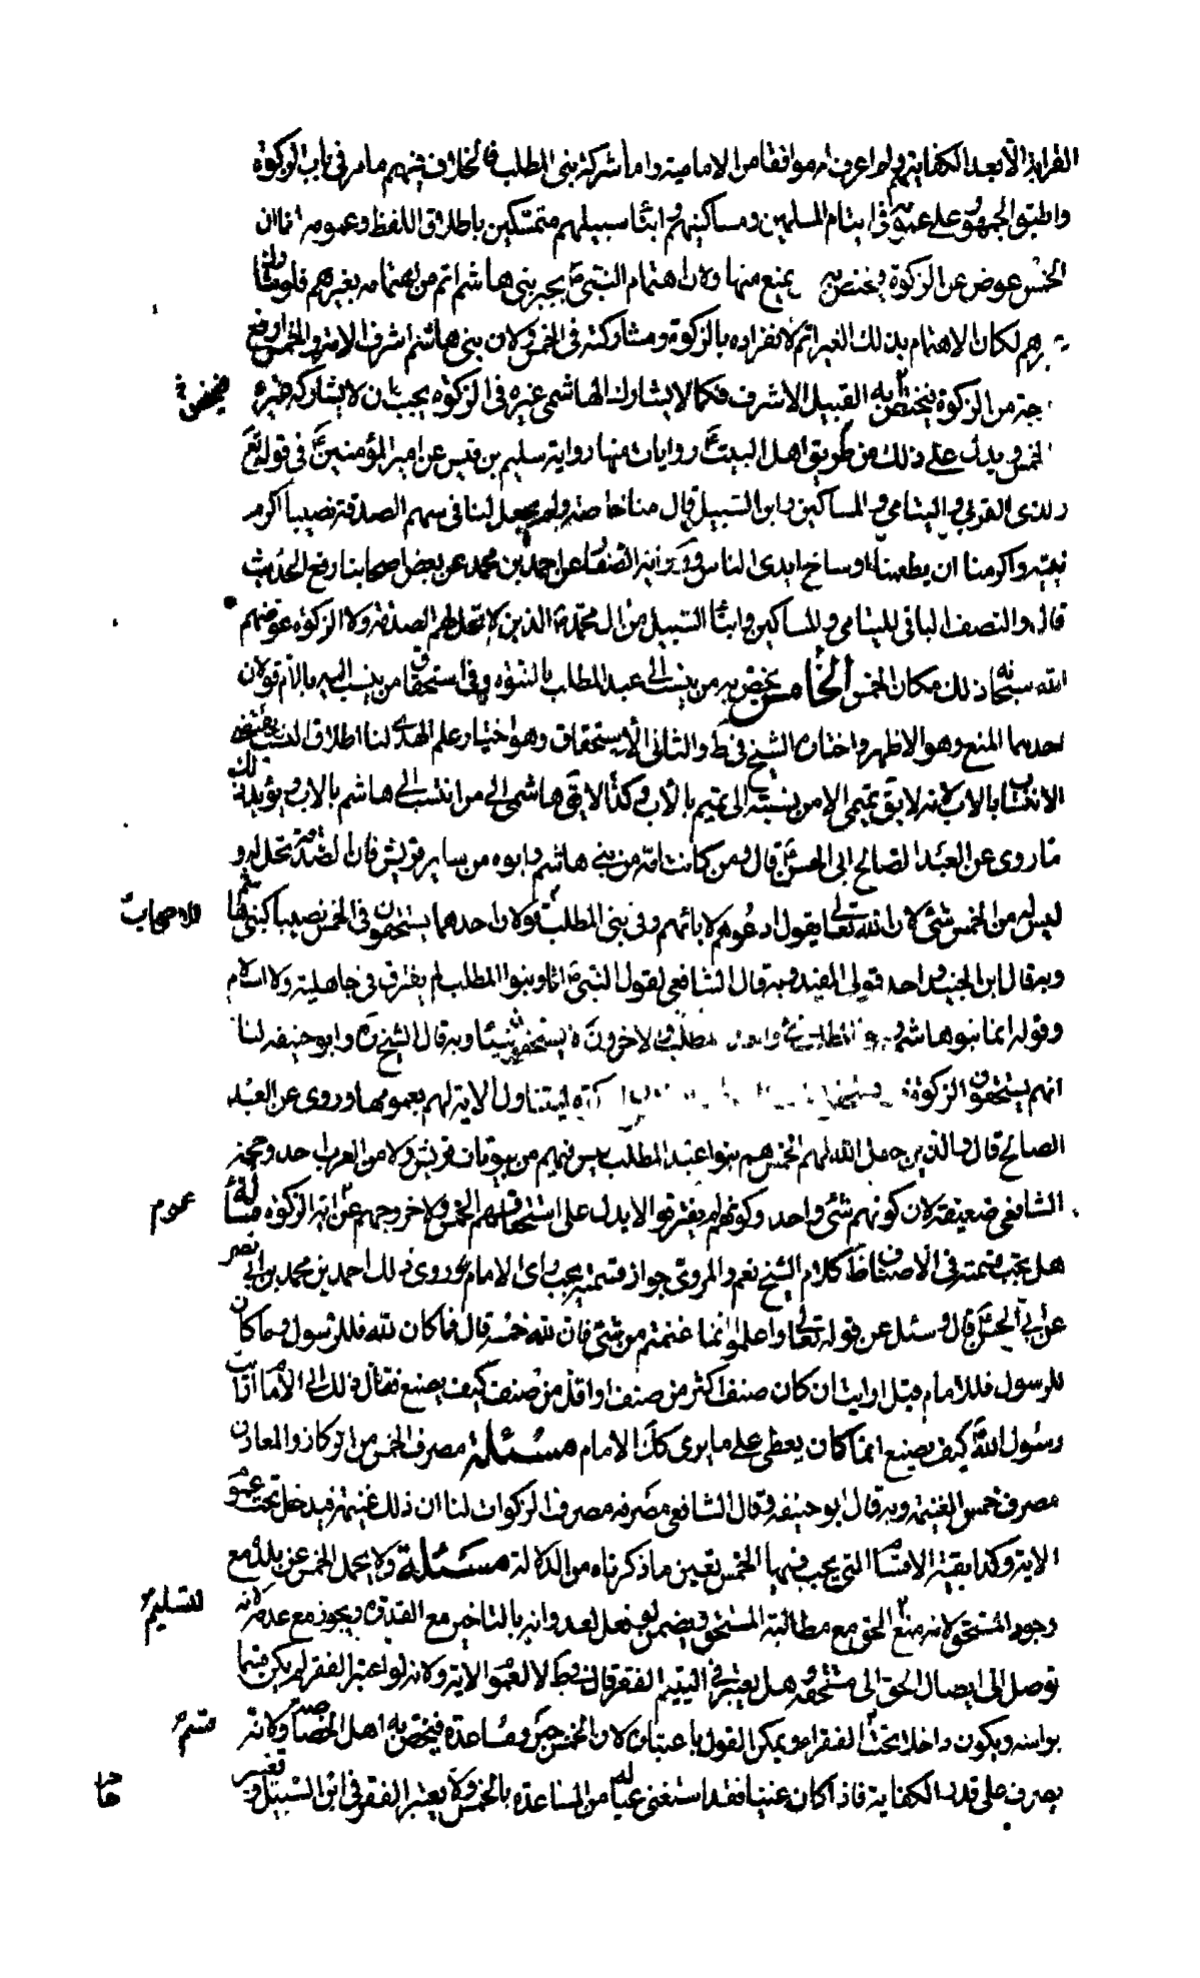 القرابة الا بعد الكفاية ولم اعرف له موافقا من الامامية واما شركة بنى المطلب فالخلاف فيهم ما مر فى باب الزكوة
واطبق الجمهور على عمومه فى ايتام المسلمين ومساكينهم وابناء سبيلهم متمسكين باطلاق اللفظ وعمومه لنا ان
الخمس عوض عن الزكوة فيختص بمن يمنع منها ولان اهتمام النبى ص بجبر بنى هاشم اتم من اهتمامه بغيرهم فلو شارك
غيرهم لكان الاهتمام بذلك الغير اتم لانفراده بالزكوة ومشاركته فى الخمس ولان بنى هاشم اشرف الامة والخمس ارفع
درجة من الزكوة فيختص به القبيل الاشرف فكما لا يشارك الهاشمى غيره فى الزكوة يجب ان لا يشاركه غيره
فى الخمس ويدل على ذلك من طريق اهل البيت ع روايات منها رواية سليم بن قيس عن امير المؤمنين ع فى قوله تع
ولذى القربى واليتامى والمساكين وابن السبيل قال منا خاصة ولم يجعل لنا فى سهم الصدقة نصيبا اكرم
نبيه واكرمنا ان يطعمنا اوساخ ايدى الناس وفى رواية عن احمد بن محمد عن بعض اصحابنا رفع الحديث
قال والنصف الباقى لليتامى والمساكين وابناء السبيل من ال محمد ع الذين لا تحل لهم الصدقة ولا الزكوة عوضهم
الله سبحانه ذلك مكان الخمس الخامس يختص به من ينتسب الى عبد المطلب بالبنوة وفى استحقاق من ينتسب اليه بالام قولان
احدهما المنع وهو الاظهر واختاره الشيخ فى ط والثانى الاستحقاق وهو اختيار علم الهدى لنا اطلاق النسب يقتضى
الانتساب بالاب لانه لا يق تميمى الا من ينتسب الى تميم بالاب وكذا لا يق هاشمى الا من انتسب الى هاشم بالاب ويؤيد ذلك
ما روى عن العبد الصالح ابى الحسن ع قال ومن كانت امه من بنى هاشم وابوه من ساير قريش فان الصدقة تحل له و
ليس له من الخمس شئ لان الله تعالى يقول ادعوهم لابائهم وفى بنى المطلب قولان احدهما يستحقون فى الخمس نصيبا كبنى هاشم
وبه قال ابن الجنيد واحد قولى المفيد وبه قال الشافعى لقول النبى ص انا وبنو المطلب لم نفترق فى جاهلية ولا اسلام
وقوله انما بنو هاشم وبنو المطلب شئ واحد والاخر لا يستحقون شيئا وبه قال الشيخ ره وابو حنيفة لنا
انهم يستحقون الزكوة ليتناول الاية لهم بعمومها وروى عن العبد
الصالح قال والذين جعل الله لهم الخمس هم بنو عبد المطلب ليس فيهم من بيوتات قريش ولا من العرب احد وحجة
الشافعى ضعيفة لان كونهم شئ واحد وكونهم لم يفترقوا لا يدل على استحقاقهم الخمس ولا خروجهم عن اية الزكوة مسألة
هل يجب قسمته فى الاصناف ظاهر كلام الشيخ نعم والمروى جواز قسمته بحسب راى الامام ع روى ذلك احمد بن محمد بن ابى نصر
عن ابى الحسن ع قال وسئل عن قوله تعالى واعلموا انما غنمتم من شئ فان لله خمسه قال فما كان لله فللرسول وما كان
للرسول فللامام قيل ارايت ان كان صنف اكثر من صنف او اقل من صنف كيف يصنع فقال ذلك الى الامام ارايت
رسول الله ص كيف يصنع انما كان يعطى على ما يرى كذا الامام مسئلة مصرف الخمس من الركاز والمعادن
مصرف خمس الغنيمة وبه قال ابو حنيفة وقال الشافعى مصرفه مصرف الزكوات لنا ان ذلك غنيمة فيدخل تحت عموم
الاية وكذا بقية الاقسام التى يجب فيها الخمس بعين ما ذكرناه من الدلالة مسئلة ولا يحمل الخمس عن بلده مع
وجود المستحق لانه منع الحق مع مطالبة المستحق ويضمن لو فعل لعدوانه بالتاخير مع القدرة ويجوز مع عدمه لانه
توصل الى ايصال الحق الى مستحقه وهل يعتبر فى اليتيم الفقر قال فى ط لا لعموم الاية ولانه لو اعتبر الفقر لم يكن قسما
براسه ويكون داخلا تحت الفقراء ويمكن القول باعتباره لان الخمس جبر ومساعدة فيختص به اهل الخصاصة ولانه
يصرف على قدر الكفاية فاذا كان غنيا فقد استغنى عن المساعدة بالخمس ولا يعتبر الفقر فى ابن السبيل و
للاصحاب
عموم
للتسليم
قسم